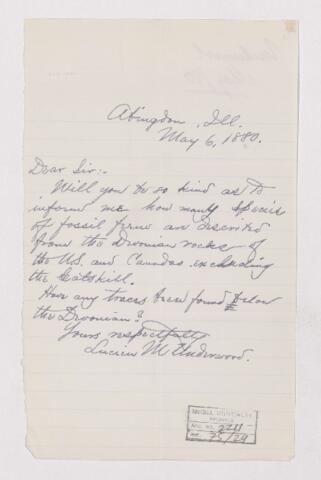 Abingdon, Ill.
May 6, 1880.
Dear Sir:-
Will you be so kind as to
inform me how many species
of fossil ferns are described
from the Devonian rocks of
the U.S. and Canadas excluding
the Catskill.
Have any traces been found below
the Devonian?
Yours respectfully
Lucien M Underwood.
McGILL UNIVERSITY
ARCHIVES
ACC. NO. 2211
REF. 25/29